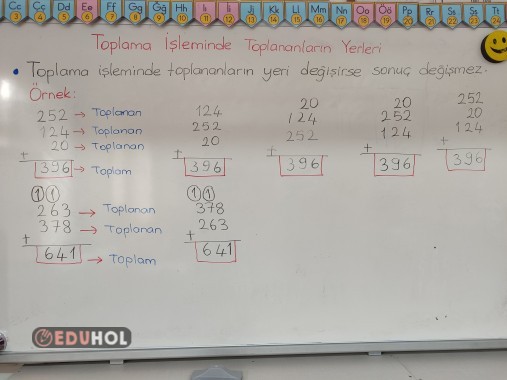 Cc Çç Dd Ee Ff Gg Ğğ Hh Iı İi Jj Kk Ll Mm Nn Oo Öö Pp Rr Ss Şş Tt
3 4 5 6 7 8 9 10 11 12 13 14 15 16 17 18 19 20 21 22 23 24
Toplama İşleminde Toplananların Yerleri
• Toplama işleminde toplananların yeri değişirse sonuç değişmez.
Örnek:
252 → Toplanan
124 → Toplanan
20 → Toplanan
+
396 → Toplam
124
252
20
+
396
20
124
252
+
396
20
252
124
+
396
252
20
124
+
396
1 1
263 → Toplanan
378 → Toplanan
+
641 → Toplam
1 1
378
263
+
641
EDUHOL